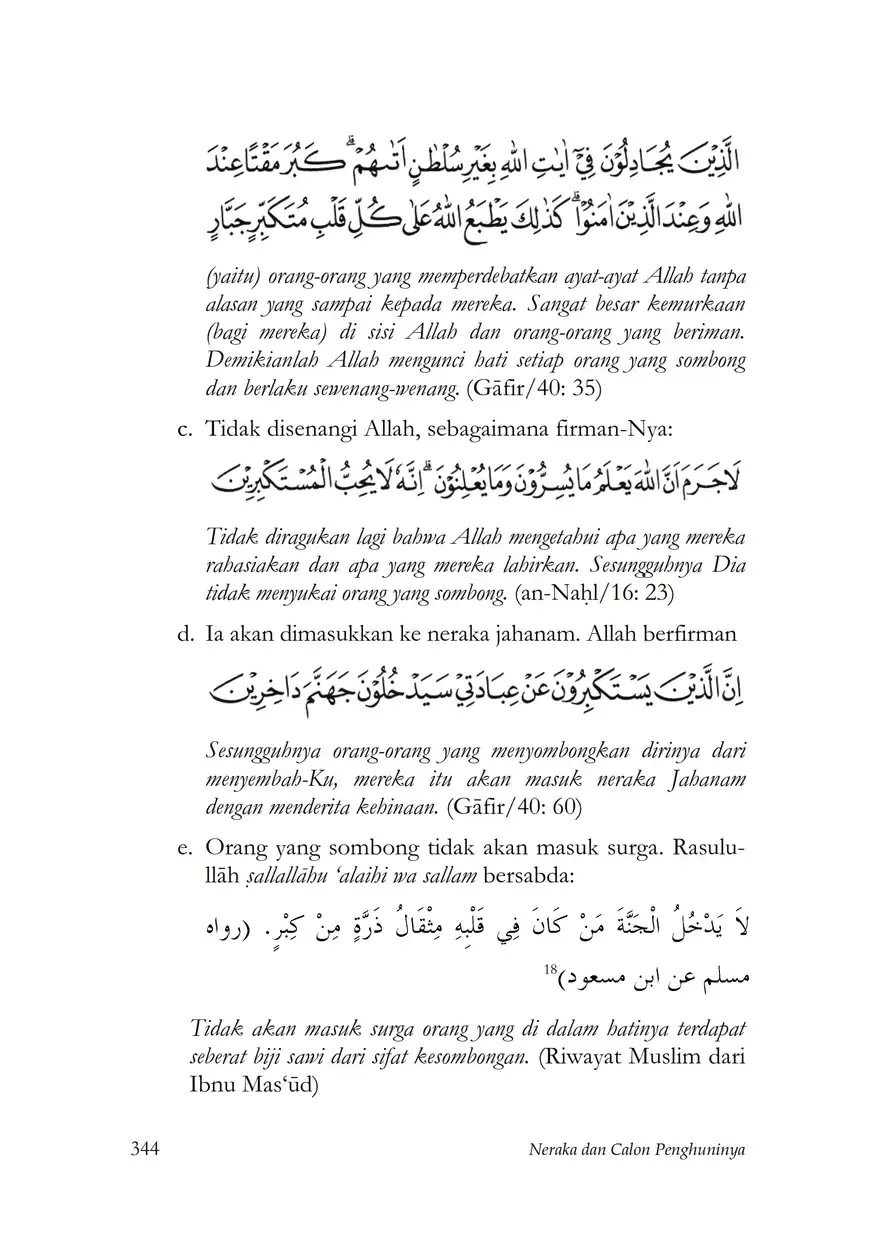 الَّذِيْنَ يُجَادِلُوْنَ فِيْٓ اٰيٰتِ اللّٰهِ بِغَيْرِ سُلْطٰنٍ اَتٰىهُمْۗ كَبُرَ مَقْتًا عِنْدَ
اللّٰهِ وَعِنْدَ الَّذِيْنَ اٰمَنُوْاۗ كَذٰلِكَ يَطْبَعُ اللّٰهُ عَلٰى كُلِّ قَلْبِ مُتَكَبِّرٍ جَبَّارٍ
(yaitu) orang-orang yang memperdebatkan ayat-ayat Allah tanpa
alasan yang sampai kepada mereka. Sangat besar kemurkaan
(bagi mereka) di sisi Allah dan orang-orang yang beriman.
Demikianlah Allah mengunci hati setiap orang yang sombong
dan berlaku sewenang-wenang. (Gāfir/40: 35)
c. Tidak disenangi Allah, sebagaimana firman-Nya:
لَا جَرَمَ اَنَّ اللّٰهَ يَعْلَمُ مَا يُسِرُّوْنَ وَمَا يُعْلِنُوْنَۗ اِنَّهٗ لَا يُحِبُّ الْمُسْتَكْبِرِيْنَ
Tidak diragukan lagi bahwa Allah mengetahui apa yang mereka
rahasiakan dan apa yang mereka lahirkan. Sesungguhnya Dia
tidak menyukai orang yang sombong. (an-Naḥl/16: 23)
d. Ia akan dimasukkan ke neraka jahanam. Allah berfirman
اِنَّ الَّذِيْنَ يَسْتَكْبِرُوْنَ عَنْ عِبَادَتِيْ سَيَدْخُلُوْنَ جَهَنَّمَ دَاخِرِيْنَ
Sesungguhnya orang-orang yang menyombongkan dirinya dari
menyembah-Ku, mereka itu akan masuk neraka Jahanam
dengan menderita kehinaan. (Gāfir/40: 60)
e. Orang yang sombong tidak akan masuk surga. Rasulu-
llāh ṣallallāhu ‘alaihi wa sallam bersabda:
لاَ يَدْخُلُ الْجَنَّةَ مَنْ كَانَ فِي قَلْبِهِ مِثْقَالُ ذَرَّةٍ مِنْ كِبْرٍ. (رواه
مسلم عن ابن مسعود)18
Tidak akan masuk surga orang yang di dalam hatinya terdapat
seberat biji sawi dari sifat kesombongan. (Riwayat Muslim dari
Ibnu Mas‘ūd)
344 Neraka dan Calon Penghuninya